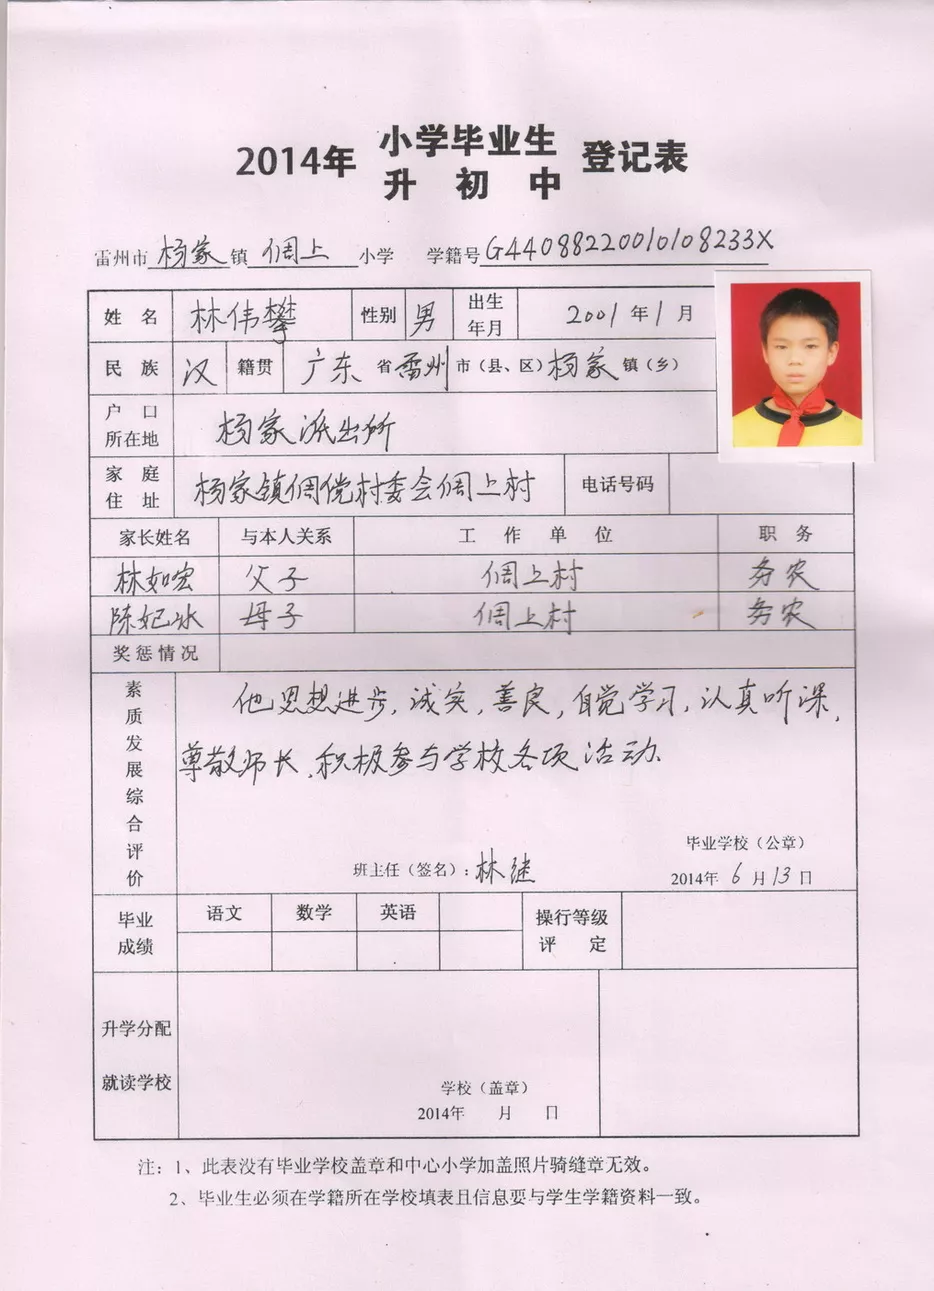 2014年 小学毕业生 登记表
升 初 中
雷州市 杨家 镇 倜上 小学 学籍号 G44088220010108233X
姓 名 林伟攀 性别 男 出生年月 2001 年 1 月
民 族 汉 籍贯 广东 省 雷州 市(县、区) 杨家 镇(乡)
户 口 所在地 杨家派出所
家 庭 住 址 杨家镇倜傥村委会倜上村 电话号码
家长姓名 与本人关系 工 作 单 位 职 务
林如宏 父子 倜上村 务农
陈妃冰 母子 倜上村 务农
奖惩情况
素质发展综合评价
他思想进步,诚实,善良,自觉学习,认真听课,
尊敬师长,积极参与学校各项活动.
毕业学校(公章)
班主任(签名):林继 2014年 6 月 13 日
毕业成绩 语文 数学 英语 操行等级评 定
升学分配
就读学校
学校(盖章)
2014年 月 日
注:1、此表没有毕业学校盖章和中心小学加盖照片骑缝章无效。
2、毕业生必须在学籍所在学校填表且信息要与学生学籍资料一致。